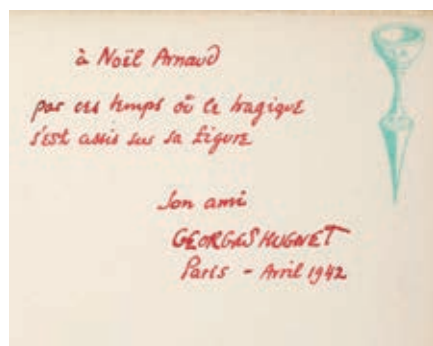 à Noël Arnaud
par ces temps où le tragique
s'est assis sur sa figure
son ami
GEORGES HUGNET
Paris - Avril 1942